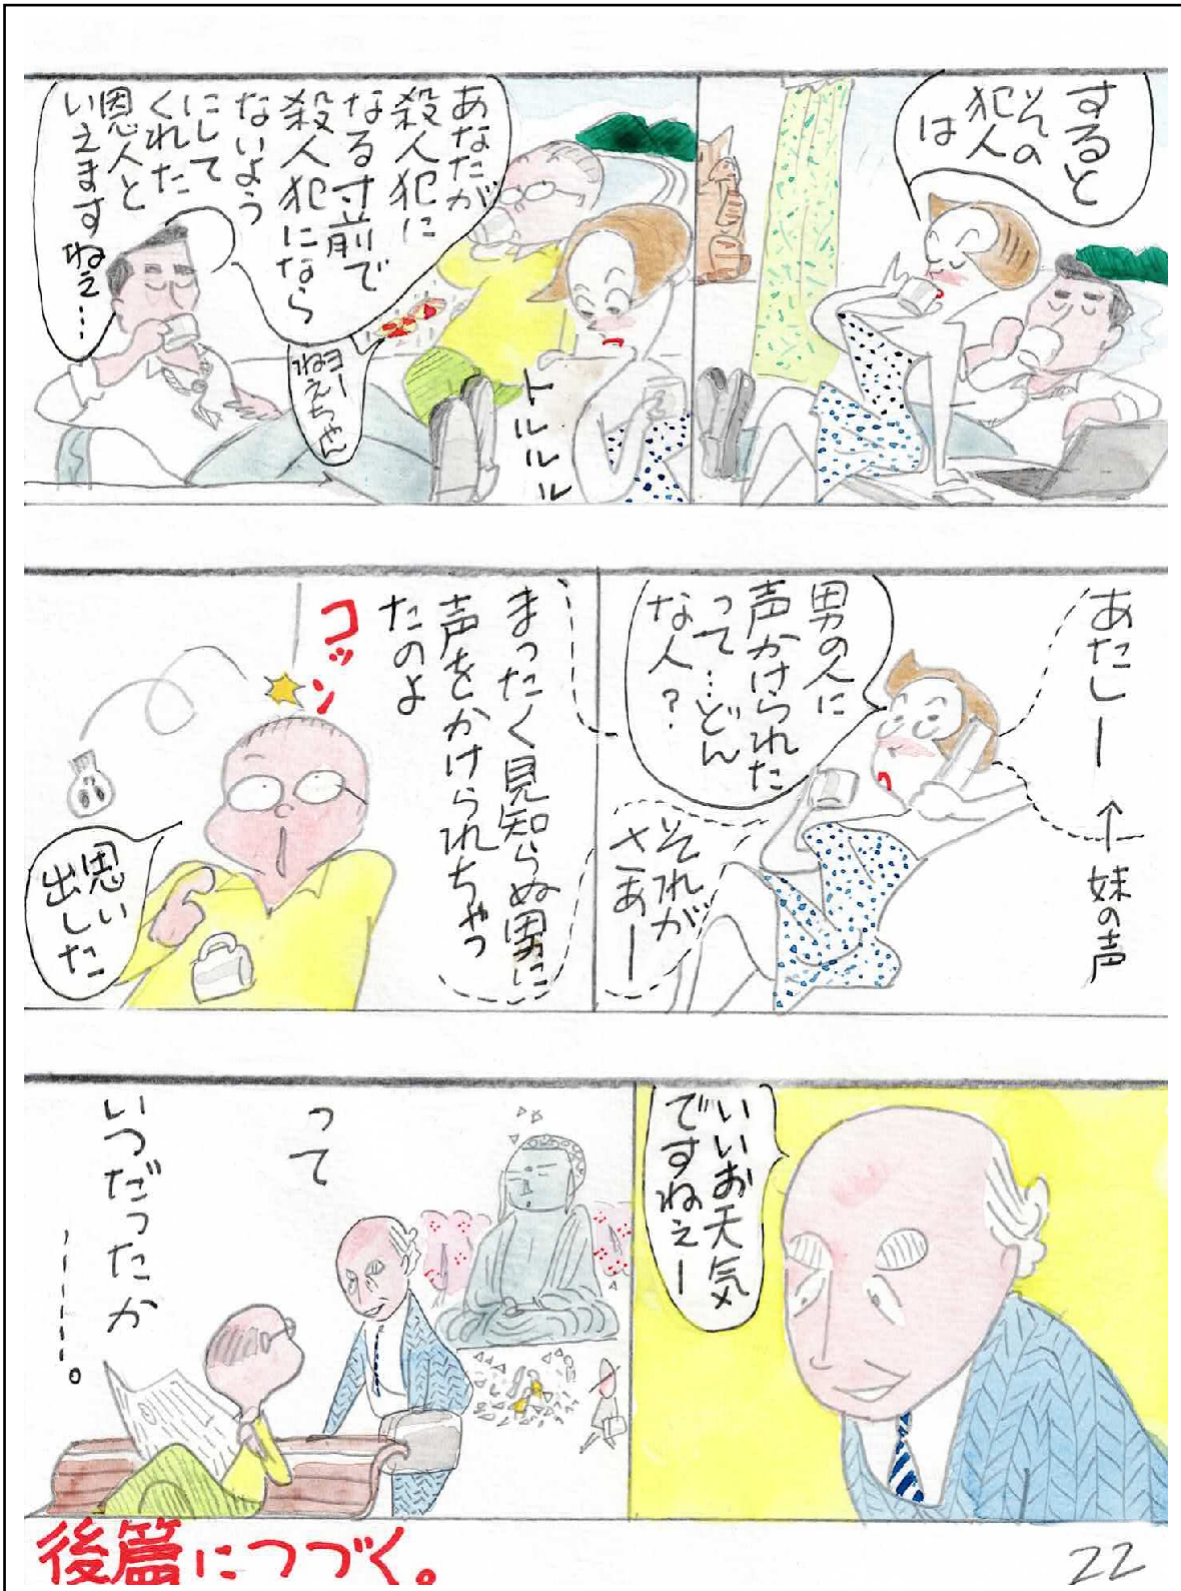 すると
その
犯人
は
あなたが
殺人犯に
なる寸前で
殺人犯になら
ないよう
にして
くれた
恩人と
いえますねぇ…
ヨー
ねえちゃん
トルルルル
あたしー
←妹の声
男の人に
声かけられた
って…どん
な人？
それが
さあー
まったく見知らぬ男に
声をかけられちゃっ
たのよ
コッン
思い
出した
いいお天気
ですねぇー
って
いつだったか
………。
後篇につづく。
22